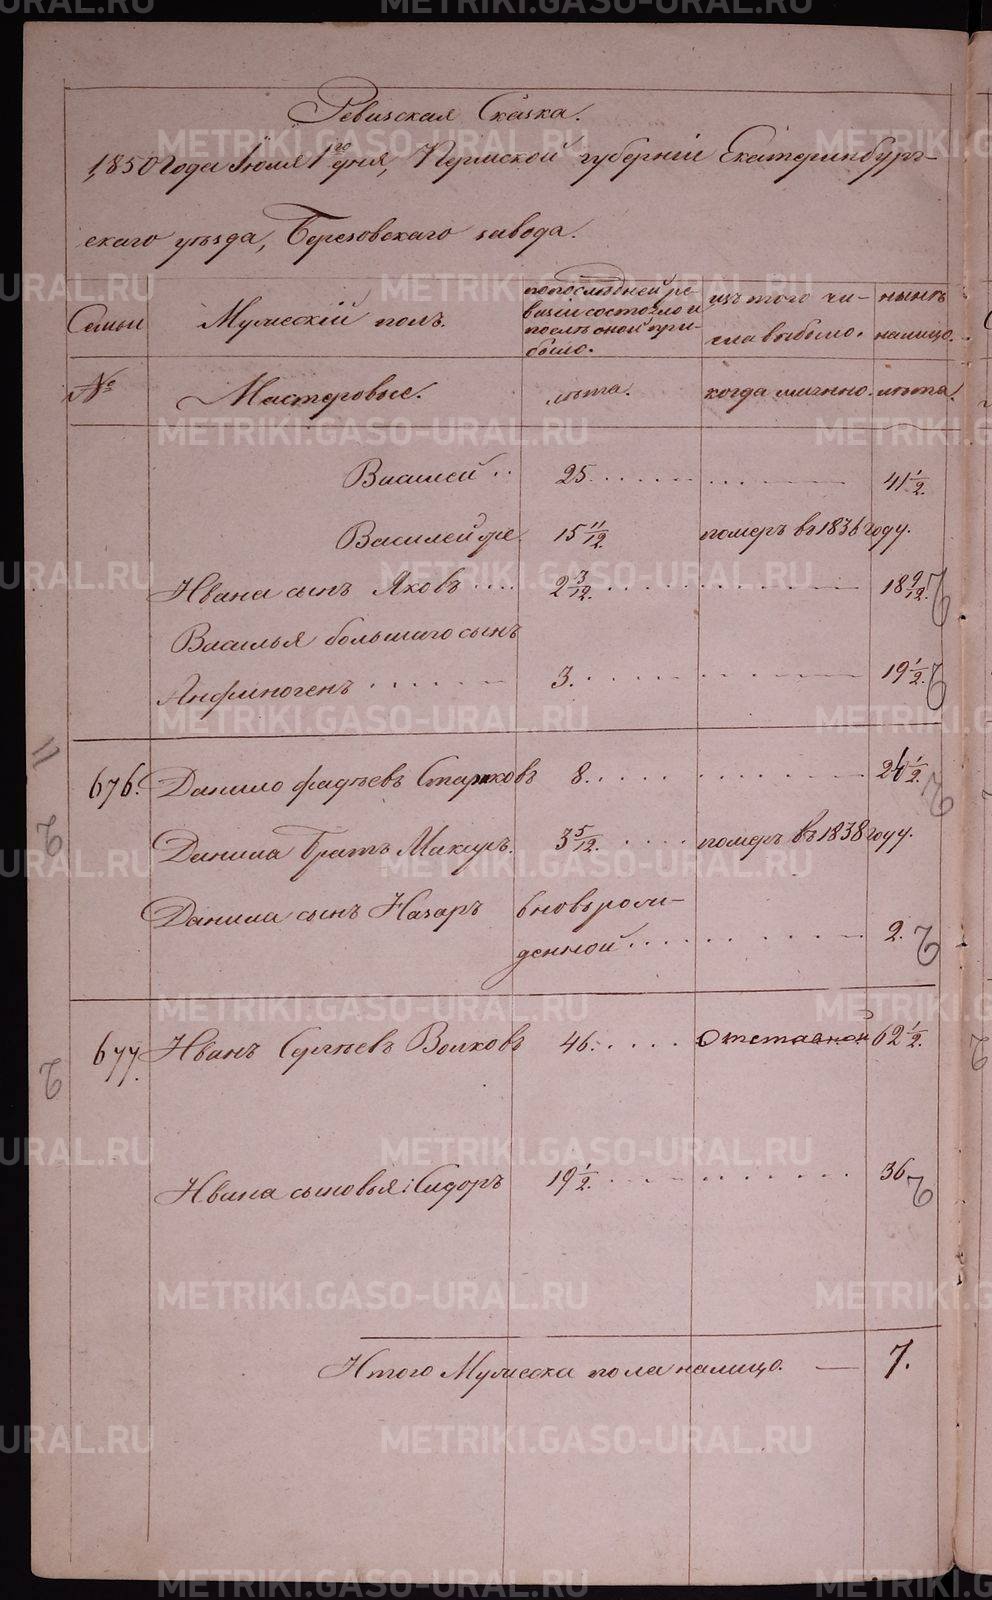 Ревизская Сказка.
1850 Года Июля 1го дня, Пермской губернiи Екатеринбург-
скаго уѣзда, Березовскаго завода.
Семьи Мужескiй полъ. попослѣдней ре-
визiи состояло и
послѣ оной при-
было. изъ того чи-
сла выбыло. нынѣ
налицо.
№ Мастеровые. лѣта. когда имянно. лѣта.
Василей 25. 41 1/2.
Василей же 15 11/12. померъ въ 1836 году.
Ивана сынъ Яковъ 2 3/12. 18 9/12.
Василья большаго сынъ
Анфиногенъ 3. 19 1/2.
676. Данило Фадѣевъ Старковъ 8. 24 1/2.
Данила братъ Макаръ. 3 5/12. померъ въ 1838 году.
Данила сынъ Назаръ вновьрож-
денной 2.
677. Иванъ Сергѣевъ Волковъ 46. Отставной 62 1/2.
Ивана сыновья: Сидоръ 19 1/2. 36
Итого Мужеска пола налицо. — 7.
METRIKI.GASO-URAL.RU